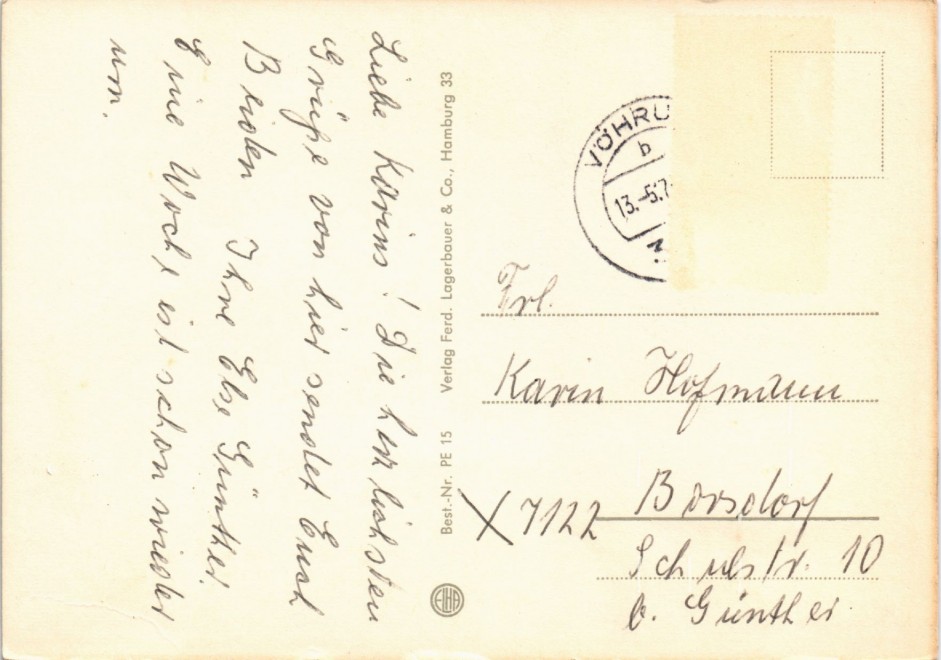 Liebe Karins! Die herzlichsten
Grüße von hier sendet Euch
Beiden Ihre Else Günther.
Eine Woche ist schon wieder
um.
Best.-Nr. PE 15 Verlag Ferd. Lagerbauer & Co., Hamburg 33
EIHA
VÖHRU
b
13.-5.7
Frl.
Karin Hofmann
X 7122 Borsdorf
Schulstr. 10
b. Günther